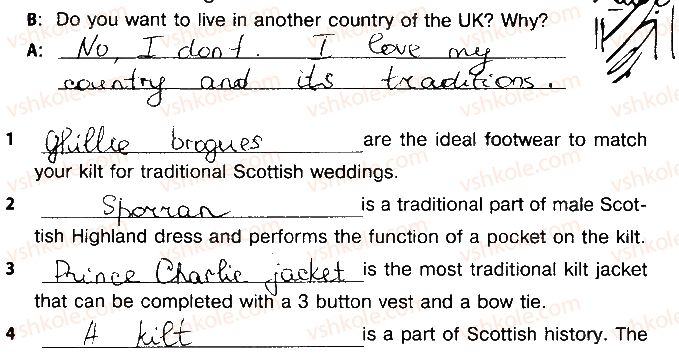 B: Do you want to live in another country of the UK? Why?
A: No, I dont. I love my
country and its traditions.
1 Ghillie brogues are the ideal footwear to match
your kilt for traditional Scottish weddings.
2 Sporran is a traditional part of male Scot-
tish Highland dress and performs the function of a pocket on the kilt.
3 Prince Charlie jacket is the most traditional kilt jacket
that can be completed with a 3 button vest and a bow tie.
4 A kilt is a part of Scottish history. The